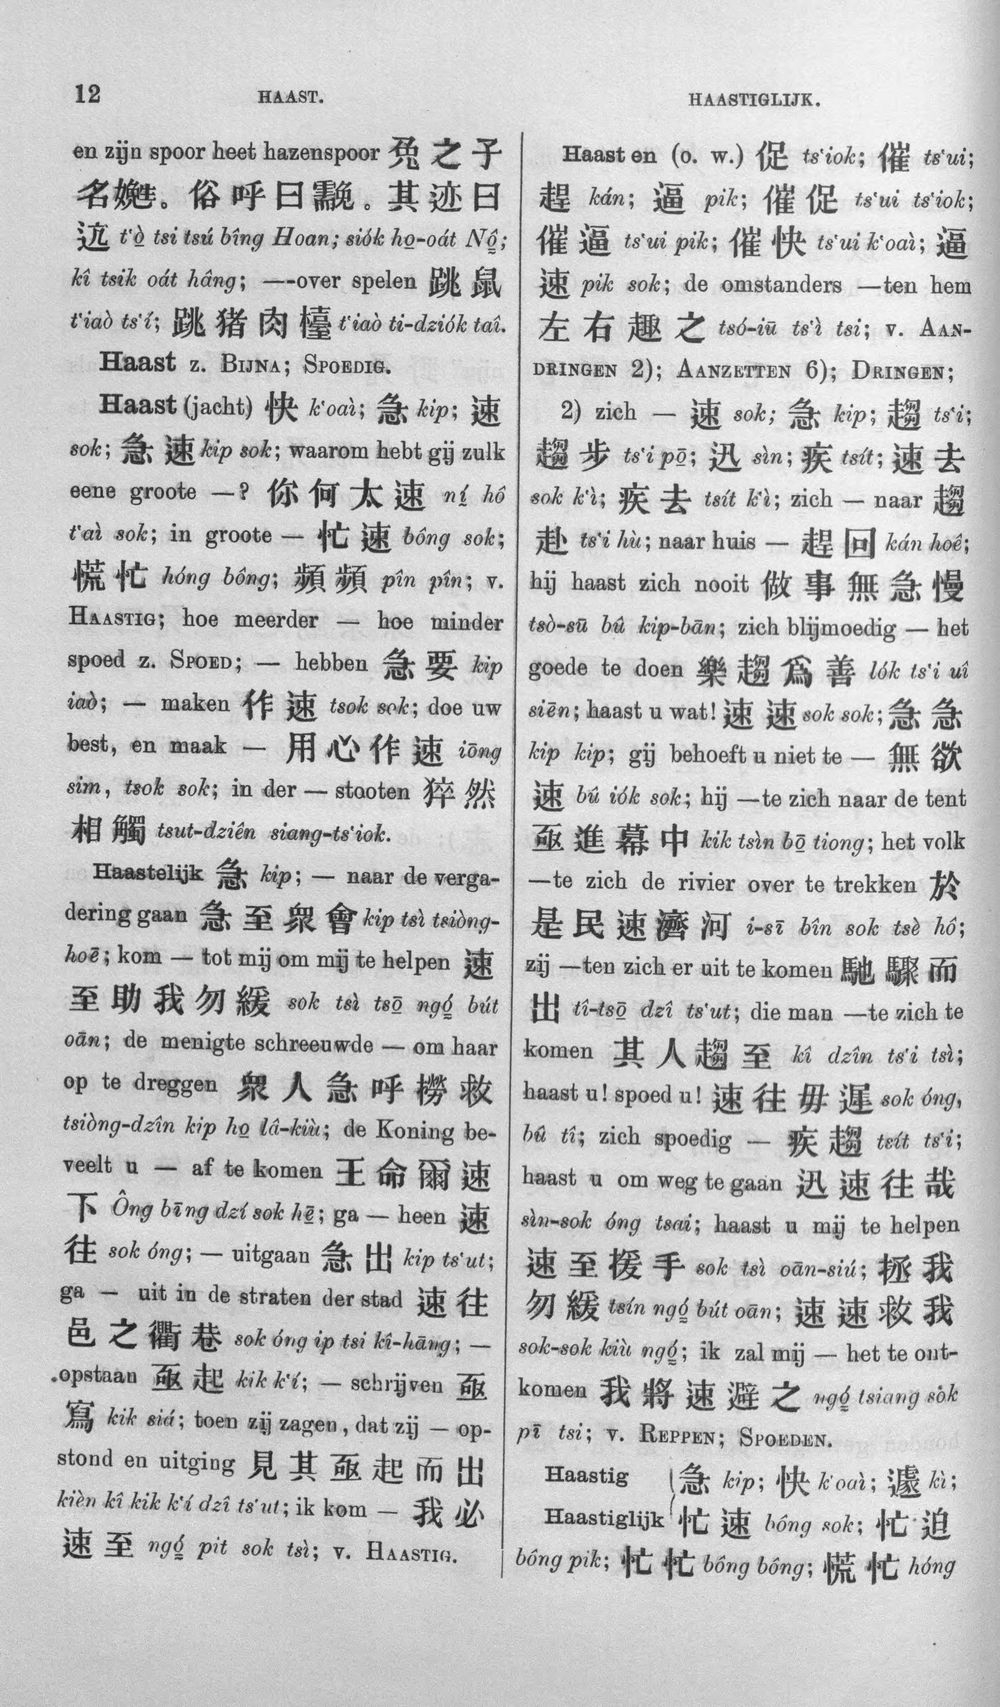 12
HAAST.
HAASTIGLIJK.
en zijn spoor heet hazenspoor 兔之子
名㝃。俗呼曰䨲。其迹曰
迒 t‘ò̤ tsi tsú bîng Hoan; siók ho̤-oát Nô̤;
kî tsik oát hâng; —-over spelen 跳鼠
t‘iaò ts‘í; 跳猪肉檯 t‘iaò ti-dziók taî.
Haast z. BIJNA; SPOEDIG.
Haast (jacht) 快 k‘oaì; 急 kip; 速
sok; 急速 kip sok; waarom hebt gij zulk
eene groote —? 你何太速 ní̤ hô
t‘aì sok; in groote — 忙速 bông sok;
慌忙 hóng bông; 頻頻 pîn pîn; v.
HAASTIG; hoe meerder — hoe minder
spoed z. SPOED; — hebben 急要 kip
iaò; — maken 作速 tsok sok; doe uw
best, en maak — 用心作速 iōng
sim, tsok sok; in der — stooten 猝然
相觸 tsut-dziên siang-ts‘iok.
Haastelijk 急 kip; — naar de verga-
dering gaan 急至衆會 kip tsì tsiòng-
hoē; kom — tot mij om mij te helpen 速
至助我勿緩 sok tsì tsō̤ ngó̤ bút
oān; de menigte schreeuwde — om haar
op te dreggen 衆人急呼撈救
tsiòng-dzîn kip ho̤ lâ-kiù; de Koning be-
veelt u — af te komen 王命爾速
下 Ông bīng dzí sok hē̤; ga — heen 速
往 sok óng; — uitgaan 急出 kip ts‘ut;
ga — uit in de straten der stad 速往
邑之衢巷 sok óng ip tsi kî-hāng; —
opstaan 亟起 kik k‘í; — schrijven 亟
寫 kik siá; toen zij zagen, dat zij — op-
stond en uitging 見其亟起而出
kièn kî kik k‘í dzî ts‘ut; ik kom — 我必
速至 ngó̤ pit sok tsì; v. HAASTIG.
Haasten (o. w.) 促 ts‘iok; 催 ts‘ui;
趕 kán; 逼 pik; 催促 ts‘ui ts‘iok;
催逼 ts‘ui pik; 催快 ts‘ui k‘oaì; 逼
速 pik sok; de omstanders —ten hem
左右趣之 tsó-iū ts‘ì tsi; v. AAN-
DRINGEN 2); AANZETTEN 6); DRINGEN;
2) zich — 速 sok; 急 kip; 趨 ts‘i;
趨步 ts‘i pō̤; 迅 sìn; 疾 tsít; 速去
sok k‘ì; 疾去 tsít k‘ì; zich — naar 趨
赴 ts‘i hù; naar huis — 趕回 kán hoê;
hij haast zich nooit 做事無急慢
tsò-sū bû kip-bān; zich blijmoedig — het
goede te doen 樂趨爲善 lók ts‘i uî
siēn; haast u wat! 速速 sok sok; 急急
kip kip; gij behoeft u niet te — 無欲
速 bû iók sok; hij —te zich naar de tent
亟進幕中 kik tsìn bō̤ tiong; het volk
—te zich de rivier over te trekken 於
是民速濟河 i-sī bîn sok tsè hô;
zij —ten zich er uit te komen 馳驟而
出 tî-tsō̤ dzî ts‘ut; die man —te zich te
komen 其人趨至 kî dzîn ts‘i tsì;
haast u! spoed u! 速往毋遲 sok óng,
bû tî; zich spoedig — 疾趨 tsít ts‘i;
haast u om weg te gaan 迅速往哉
sìn-sok óng tsai; haast u mij te helpen
速至援手 sok tsì oān-siú; 拯我
勿緩 tsín ngó̤ bút oān; 速速救我
sok-sok kiù ngó̤; ik zal mij — het te ont-
komen 我將速避之 ngó̤ tsiang sok
pī tsi; v. REPPEN; SPOEDEN.
Haastig 急 kip; 快 k‘oaì; 遽 kì;
Haastiglijk 忙速 bông sok; 忙迫
bông pik; 忙忙 bông bông; 慌忙 hóng